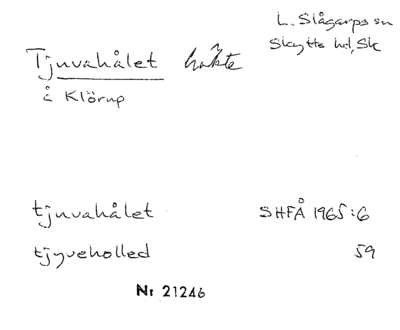 L. Slågarps sn
Skytts hd, Sk
Tjuvahålet häkte
å Klörup
tjuvahålet SHFÅ 1965:6
tjyveholled 59
Nr 21246